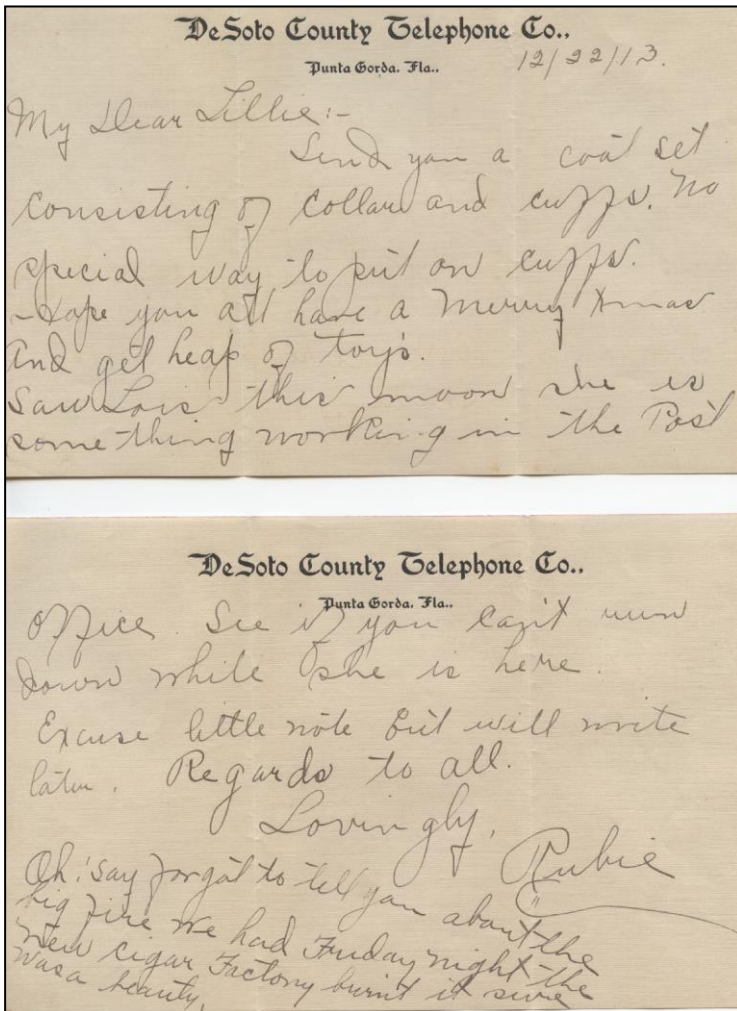 DeSoto County Telephone Co.,
Punta Gorda. Fla.,
12/22/13.
My Dear Lillie:-
Send you a coat set
consisting of collar and cuffs. No
special way to put on cuffs.
Hope you all have a Merry Xmas
and get heap of toys.
Saw Lois this moon she is
something working in the Post
DeSoto County Telephone Co.,
Punta Gorda. Fla.,
Office. See if you can't run
down while she is here.
Excuse little note but will write
later. Regards to all.
Lovingly,
Rubie
Oh! say forgot to tell you about the
big fire we had Friday night the
new cigar Factory burnt it sure
was a beauty.